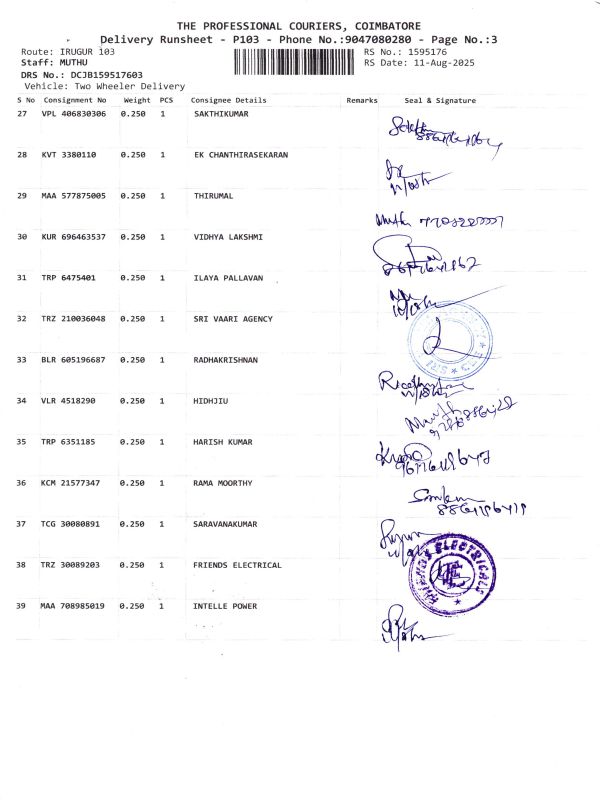 THE PROFESSIONAL COURIERS, COIMBATORE
Delivery Runsheet - P103 - Phone No.:9047080280 - Page No.:3
Route: IRUGUR 103 RS No.: 1595176
Staff: MUTHU RS Date: 11-Aug-2025
DRS No.: DCJB159517603
Vehicle: Two Wheeler Delivery
S No Consignment No Weight PCS Consignee Details Remarks Seal & Signature
27 VPL 406830306 0.250 1 SAKTHIKUMAR
28 KVT 3380110 0.250 1 EK CHANTHIRASEKARAN
29 MAA 577875005 0.250 1 THIRUMAL
30 KUR 696463537 0.250 1 VIDHYA LAKSHMI
31 TRP 6475401 0.250 1 ILAYA PALLAVAN
32 TRZ 210036048 0.250 1 SRI VAARI AGENCY
33 BLR 605196687 0.250 1 RADHAKRISHNAN
34 VLR 4518290 0.250 1 HIDHJIU
35 TRP 6351185 0.250 1 HARISH KUMAR
36 KCM 21577347 0.250 1 RAMA MOORTHY
37 TCG 30080891 0.250 1 SARAVANAKUMAR
38 TRZ 30089203 0.250 1 FRIENDS ELECTRICAL
FRIENDS ELECTRICALS
39 MAA 708985019 0.250 1 INTELLE POWER